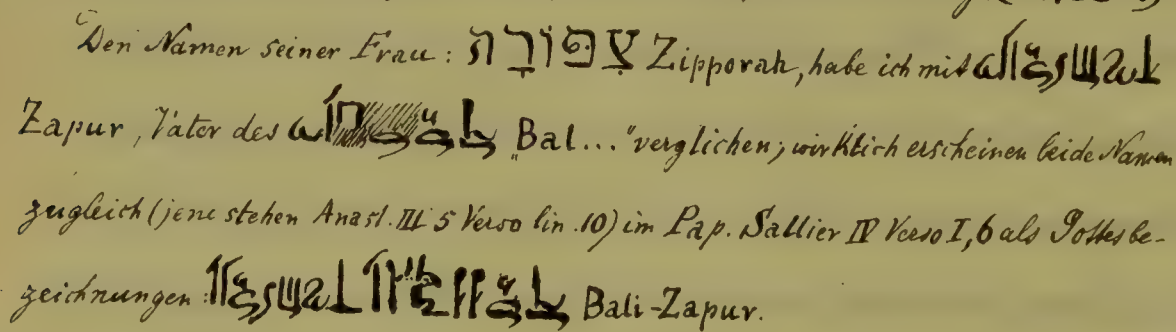 Den Namen seiner Frau: צִפּוֹרָה Zipporah, habe ich mit
Zapur, Vater des „Bal..." verglichen; wirklich erscheinen beide Namen
zugleich (jene stehen Anast. III 5 Verso lin. 10) im Pap. Sallier IV Verso I, 6 als Gottesbe-
zeichnungen: Bali-Zapur.